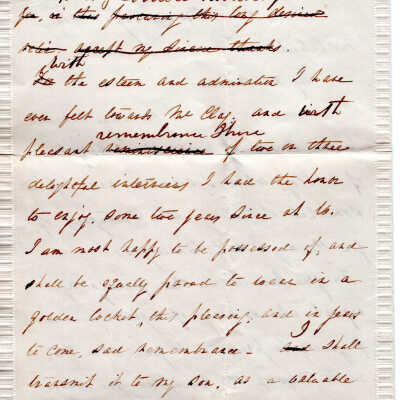 for in this procuring this long desired
relic, accept my sincere thanks.
With
To the esteem and admiration I have
ever felt towards Mr Clay. and with
remembrance I have
pleasant reminiscences of two or three
delightful interviews I had the honor
to enjoy, some two years since at W.
I am most happy to be possessed of, and
shall be equally proud to wear in a
golden locket, this pleasing, and in years
to come, sad remembrance - and I shall
transmit it to my son, as a valuable